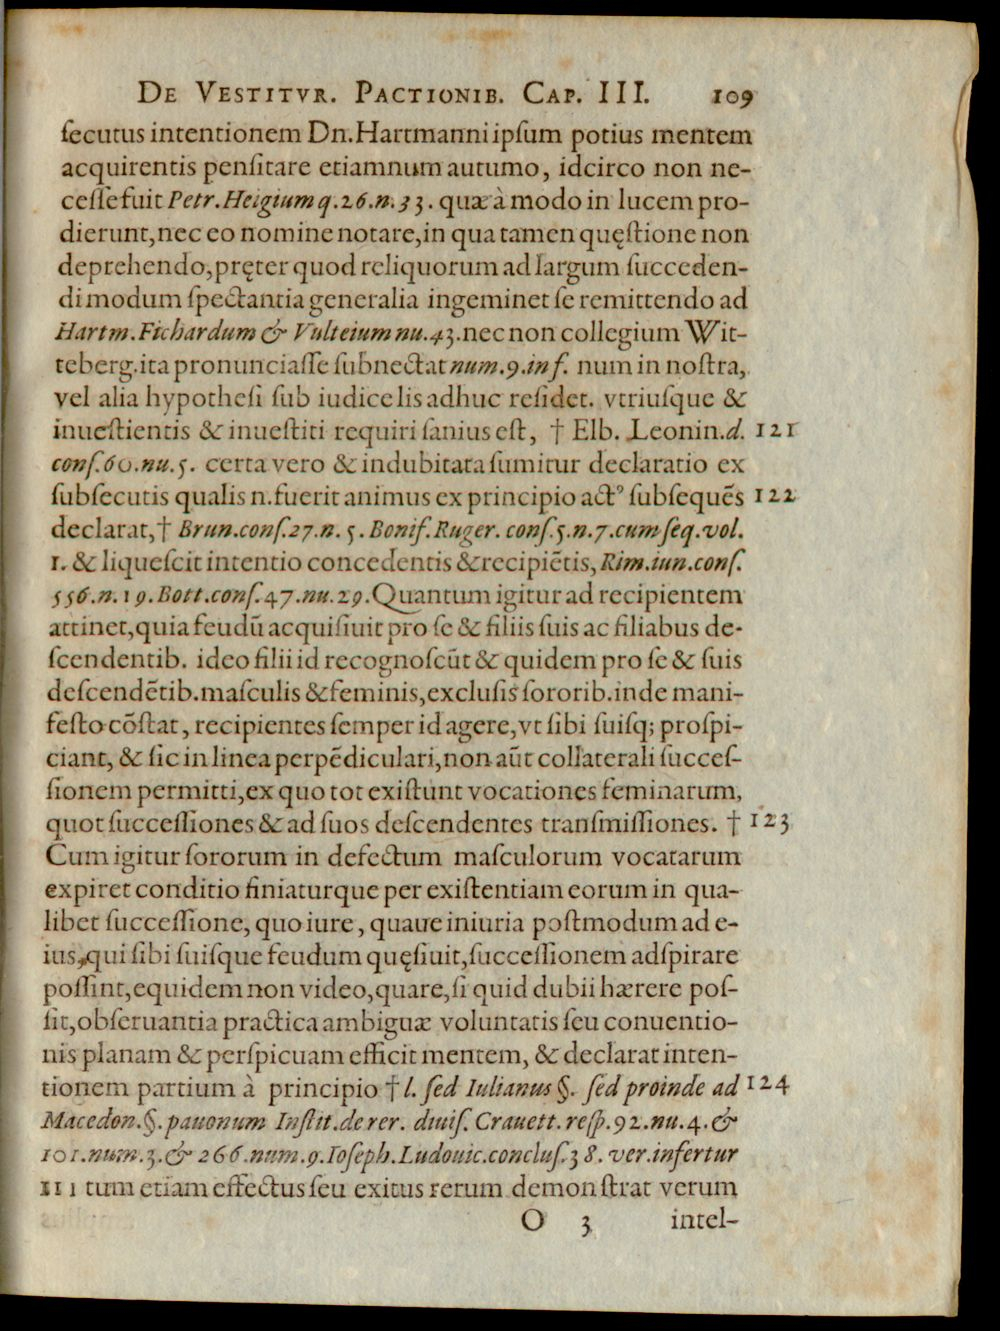 De Vestitvr. Pactionib. Cap. III. 109
ſecutus intentionem Dn. Hartmanni ipſum potius mentem
acquirentis penſitare etiamnum autumo, idcirco non ne-
ceſſe fuit Petr. Heigium q. 26. n. 33. quæ à modo in lucem pro-
dierunt, nec eo nomine notare, in qua tamen quęſtione non
deprehendo, pręter quod reliquorum ad largum ſucceden-
di modum ſpectantia generalia ingeminet ſe remittendo ad
Hartm. Fichardum & Vulteium nu. 43. nec non collegium Wit-
teberg. ita pronunciaſſe ſubnectat num. 9. inf. num in noſtra,
vel alia hypotheſi ſub iudice lis adhuc reſidet. vtriuſque &
inueſtientis & inueſtiti requiri ſanius eſt, † Elb. Leonin. d. 121
conſ. 60. nu. 5. certa vero & indubitata ſumitur declaratio ex
ſubſecutis qualis n. fuerit animus ex principio actꝰ ſubſequẽs 122
declarat, † Brun. conſ. 27. n. 5. Bonif. Ruger. conſ. 5. n. 7. cum ſeq. vol.
1. & liqueſcit intentio concedentis & recipiẽtis, Rim. iun. conſ.
556. n. 19. Bott. conſ. 47. nu. 29. Quantum igitur ad recipientem
attinet, quia feudũ acquiſiuit pro ſe & filiis ſuis ac filiabus de-
ſcendentib. ideo filii id recognoſcũt & quidem pro ſe & ſuis
deſcendẽtib. maſculis & feminis, excluſis ſororib. inde mani-
feſto cõſtat, recipientes ſemper id agere, vt ſibi ſuiſq; proſpi-
ciant, & ſic in linea perpẽdiculari, non aũt collaterali ſucceſ-
ſionem permitti, ex quo tot exiſtunt vocationes feminarum,
quot ſucceſſiones & ad ſuos deſcendentes transmiſſiones. † 123
Cum igitur ſororum in defectum maſculorum vocatarum
expiret conditio finiaturque per exiſtentiam eorum in qua-
libet ſucceſſione, quo iure, quaue iniuria poſtmodum ad e-
ius, qui ſibi ſuiſque feudum quęſiuit, ſucceſſionem adſpirare
poſſint, equidem non video, quare, ſi quid dubii hærere poſ-
ſit, obſeruantia practica ambiguæ voluntatis ſeu conuentio-
nis planam & perſpicuam efficit mentem, & declarat inten-
tionem partium à principio † l. ſed Iulianus §. ſed proinde ad 124
Macedon. §. pauonum Inſtit. de rer. diuiſ. Crauett. reſp. 92. nu. 4. &
101. num. 3. & 266. num. 9. Ioſeph. Ludouic. concluſ. 38. ver. infertur
111 tum etiam effectus ſeu exitus rerum demonſtrat verum
O 3 intel-